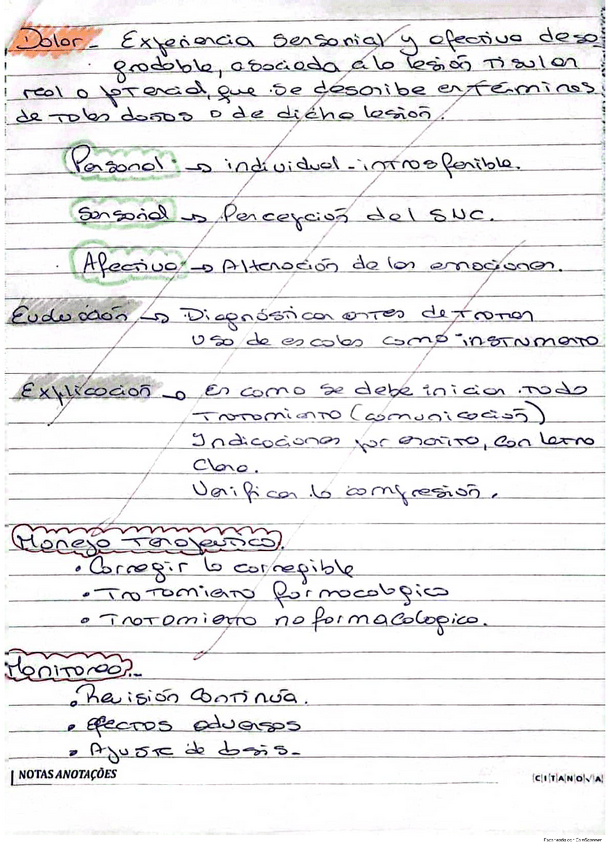 Dolor - Experiencia sensorial y afectiva desa-
gradable, asociada a la lesión tisular
real o potencial, que se describe en términos
de tales daños o de dicha lesión.
Personal → individual - intrasferible.
Sensorial → Percepción del SNC.
Afectiva → Alteración de las emociones.
Evaluación → Diagnósticar antes de tratar
Uso de escalas como instrumento
Explicación → Es como se debe iniciar todo
Tratamiento (comunicación)
Indicaciones por escrito, con letra
clara.
Verificar la compresión.
Manejo Terapeutico.
• Corregir lo corregible
• Tratamiento farmacologico
• Tratamiento no farmacologico.
Monitoreo.-
• Revisión continua.
• Efectos adversos
• Ajuste de dosis-
NOTAS ANOTAÇÕES
CITANOVA
Escaneado con CamScanner